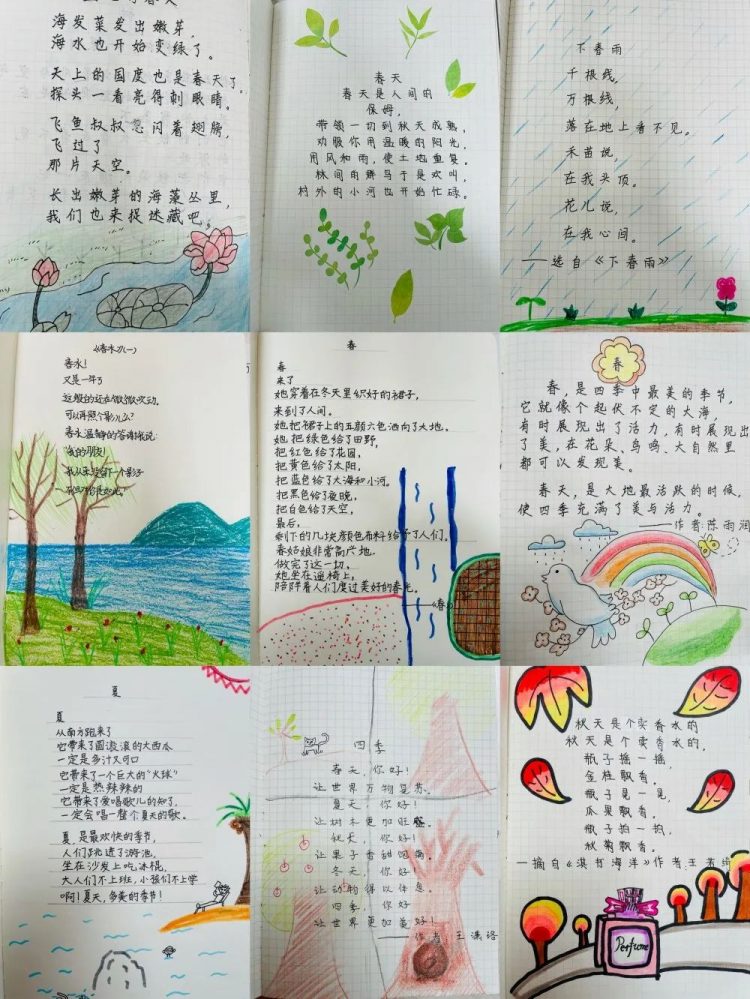 海发菜发出嫩芽,
海水也开始变绿了。
天上的国度也是春天了。
探头一看亮得刺眼睛。
飞鱼叔叔忽闪着翅膀,
飞过了
那片天空。
长出嫩芽的海藻丛里,
我们也来捉迷藏吧,
春天
春天是人间的
保姆,
带领一切到秋天成熟,
劝服你用温暖的阳光,
用风和雨,使土地重复。
林间的
村外的小河也开始忙碌。
下春雨
千根线,
万根线,
落在地上看不见。
禾苗说,
在我头顶。
花儿说,
在我心间。
——选自《下春雨》
春水!
又是一年了
还这般的
可以再照个影儿么?
春水温静的答谢我说:
"我的朋友!
我从来没留下一个影子
春
春
来了
她穿着在冬天里织好的裙子,
来到了人间。
她把裙子上的五颜六色洒向了大地。
她把绿色给了田野,
把红色给了花园,
把黄色给了太阳,
把蓝色给了大海和小河。
把黑色给了夜晚,
把白色给了天空,
最后,
剩下的几块颜色布料给予了人们。
春姑娘非常高兴地
做完了这一切,
她坐在遥椅上,
陪伴着人们度过美好的春光。
——《春》
春
春,是四季中最美的季节,
它就像个起伏不定的大海,
有时展现出了活力,有时展现出
了美,在花朵、鸟鸣、大自然里
都可以发现美。
春天,是大地最活跃的时候,
使四季充满了美与活力。
——作者:陈雨润
夏
夏
从南方跑来了
它带来了圆滚滚的大西瓜
一定是多汁又可口
它带来了一个巨大的"火球"
一定是热辣辣的
它带来了爱唱歌儿的知了,
一定会唱一整个夏天的歌。
夏是最欢快的季节,
人们跳进了游池,
坐在沙发上吃冰棍,
大人们不上班,小孩们不上学
啊!夏天,多美的季节!
四季
春天,你好!
让世界万物复苏。
夏天,你好!
让树木更加旺盛。
秋天,你好!
让果子香甜饱满。
冬天,你好
让动物得以休息。
四季,你好
让世界更加美好!
——作者王潇洛
秋天是个卖香水的
秋天是个卖香水的,
瓶子摇一摇,
金桂飘香。
瓶子晃一晃,
瓜果飘香。
瓶子拍一拍,
秋菊飘香。
—摘自《淇书海洋》作者王若绮
Perfume